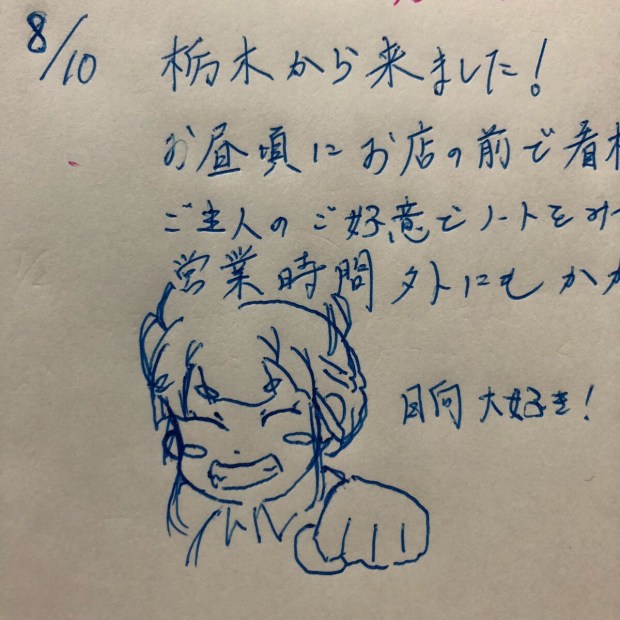 8/10 栃木から来ました!
お昼頃にお店の前で看板
ご主人のご好意でノートをみ
営業時間外にもかか
日向大好き!